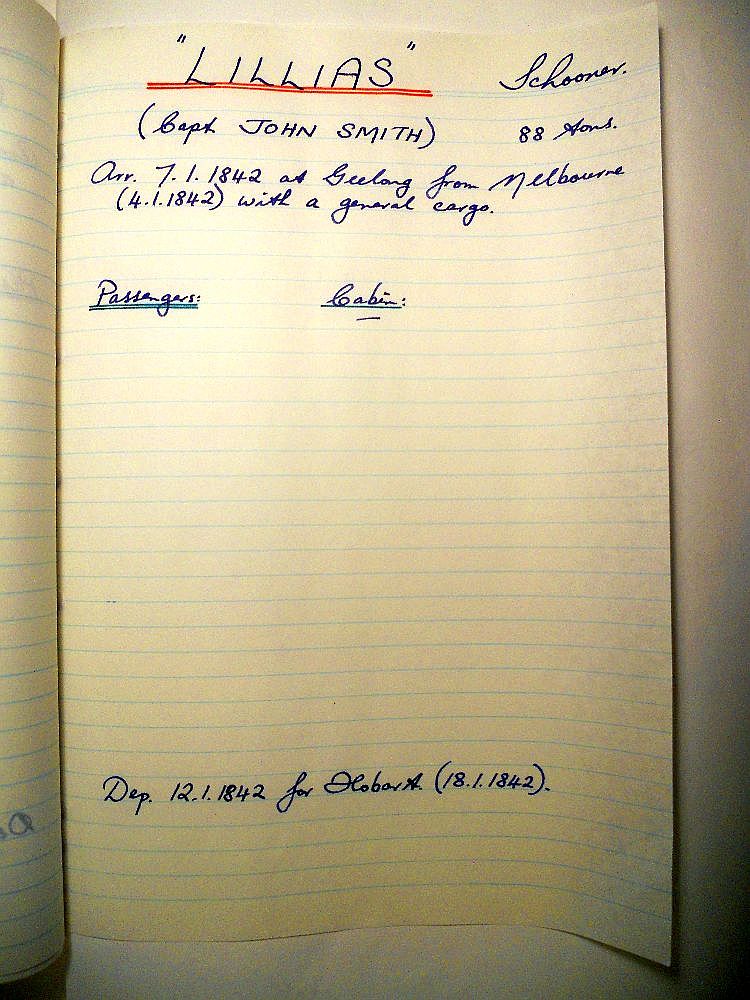 "LILLIAS" Schooner.
(Capt JOHN SMITH) 88 tons.
Arr. 7.1.1842 at Geelong from Melbourne
(4.1.1842) with a general cargo.
Passengers: Cabin:
—
Dep. 12.1.1842 for Hobart (18.1.1842).